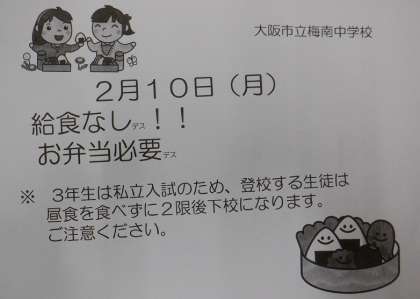 大阪市立梅南中学校
２月１０日（月）
給食なしデス！！
お弁当必要デス
※　３年生は私立入試のため、登校する生徒は
昼食を食べずに２限後下校になります。
ご注意ください。